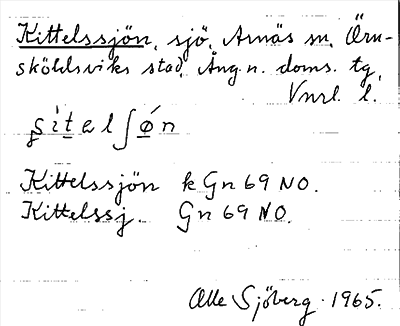 Kittelssjön, sjö, Arnäs sn, Örn-
sköldsviks stad, Ång. n. doms. tg,
Vnrl. l.
Kittelssjön k Gn 69 NO.
Kittelssj. Gn 69 NO.
Olle Sjöberg 1965.